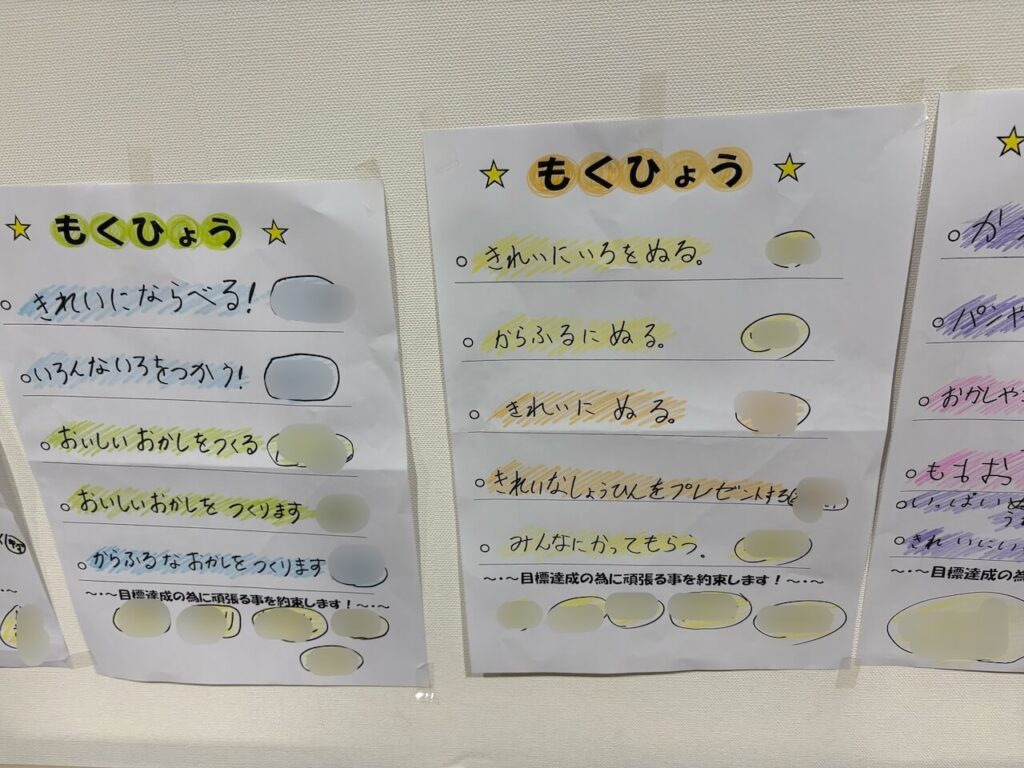 ★ もくひょう ★
○ きれいにならべる!
○ いろんないろをつかう!
○ おいしいおかしをつくる
○ おいしいおかしをつくります
○ からふるなおかしをつくります
〜・〜目標達成の為に頑張る事を約束します!〜・〜
★ もくひょう ★
○ きれいにいろをぬる。
○ からふるにぬる。
○ きれいにぬる。
○ きれいなしょうひんをプレゼントする
○ みんなにかってもらう。
〜・〜目標達成の為に頑張る事を約束します!〜・〜
★
○ か
○ パンや
○ おかしや
○ ももお
○ いっぱい
○ きれいにい
〜・〜目標達成の為